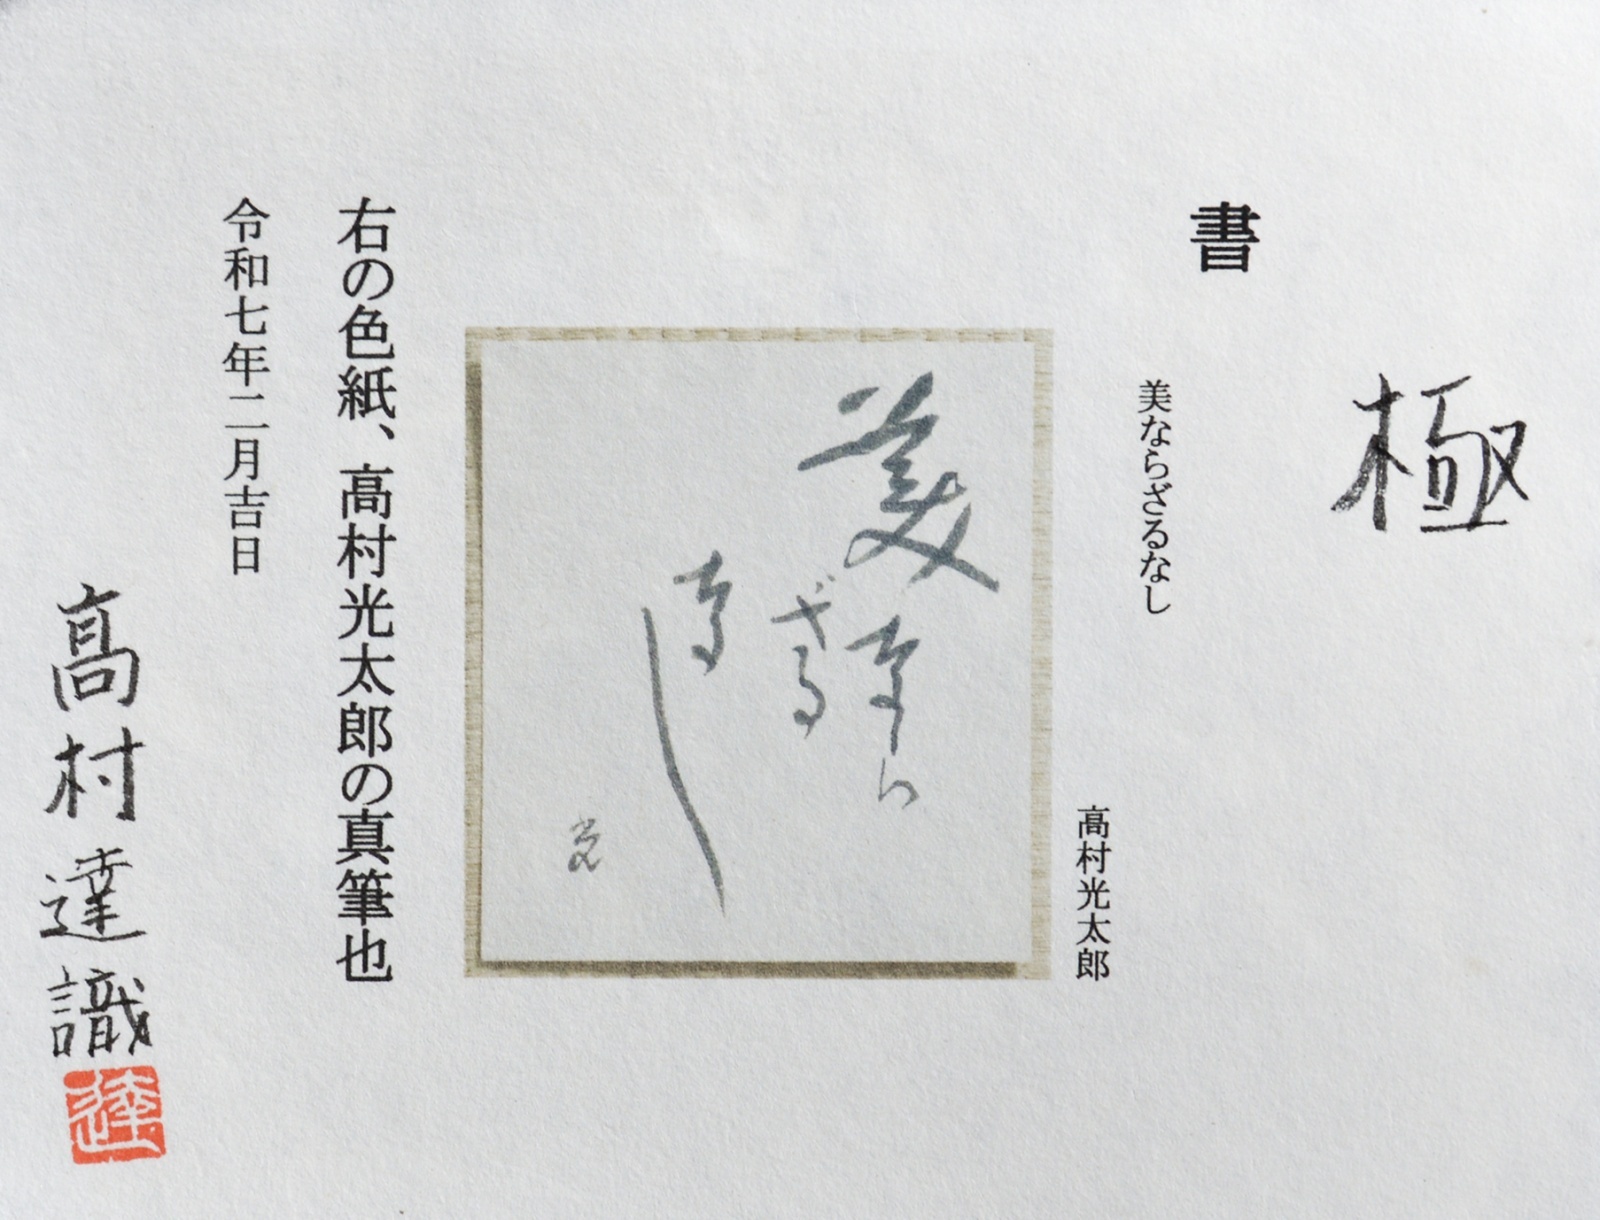 極
書
美ならざるなし
髙村光太郎
美なら
ざる
なし
光
右の色紙、髙村光太郎の真筆也
令和七年二月吉日
髙村達識
達